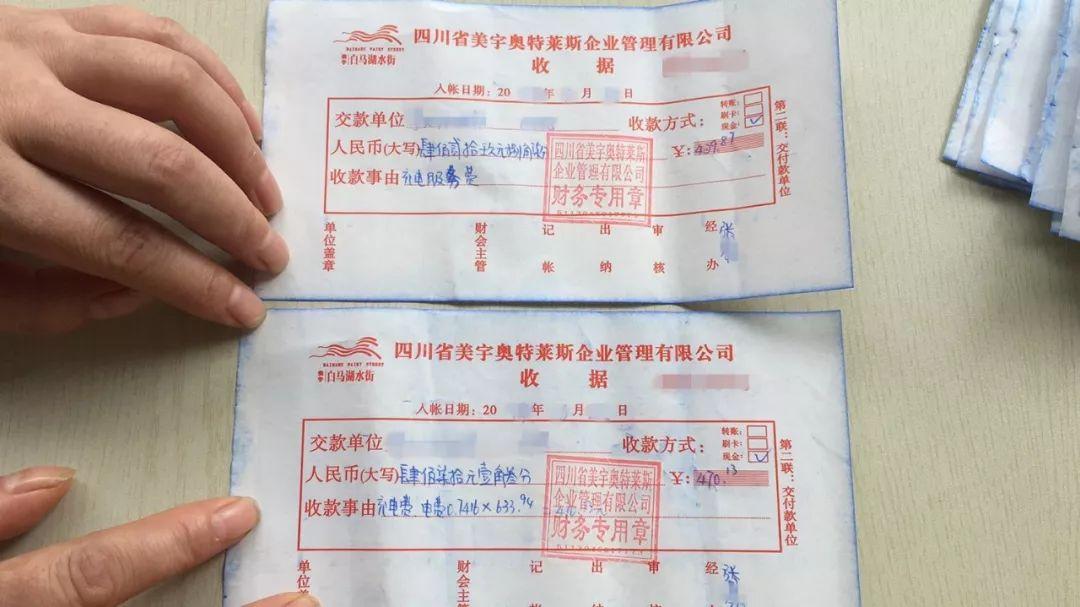 四川省美宇奥特莱斯企业管理有限公司
美宇 白马湖水街
收 据
入帐日期: 20 年 月 日
转账:
刷卡:
现金: ✓
交款单位
收款方式:
人民币(大写)肆佰贰拾
¥: 429.87
收款事由充电服务费
四川省美宇奥特莱斯
企业管理有限公司
财务专用章
第二联:交付款单位
单位盖章 财会主管 记帐 出纳 审核 经办 张
四川省美宇奥特莱斯企业管理有限公司
美宇 白马湖水街
收 据
入帐日期: 20 年 月 日
转账:
刷卡:
现金: ✓
交款单位
收款方式:
人民币(大写)肆佰柒拾元壹角叁分
¥: 470.13
收款事由充电费 电费0.7416×633.94
四川省美宇奥特莱斯
企业管理有限公司
财务专用章
第二联:交付款单位
单位盖章 财会主管 记 出 审 经 张